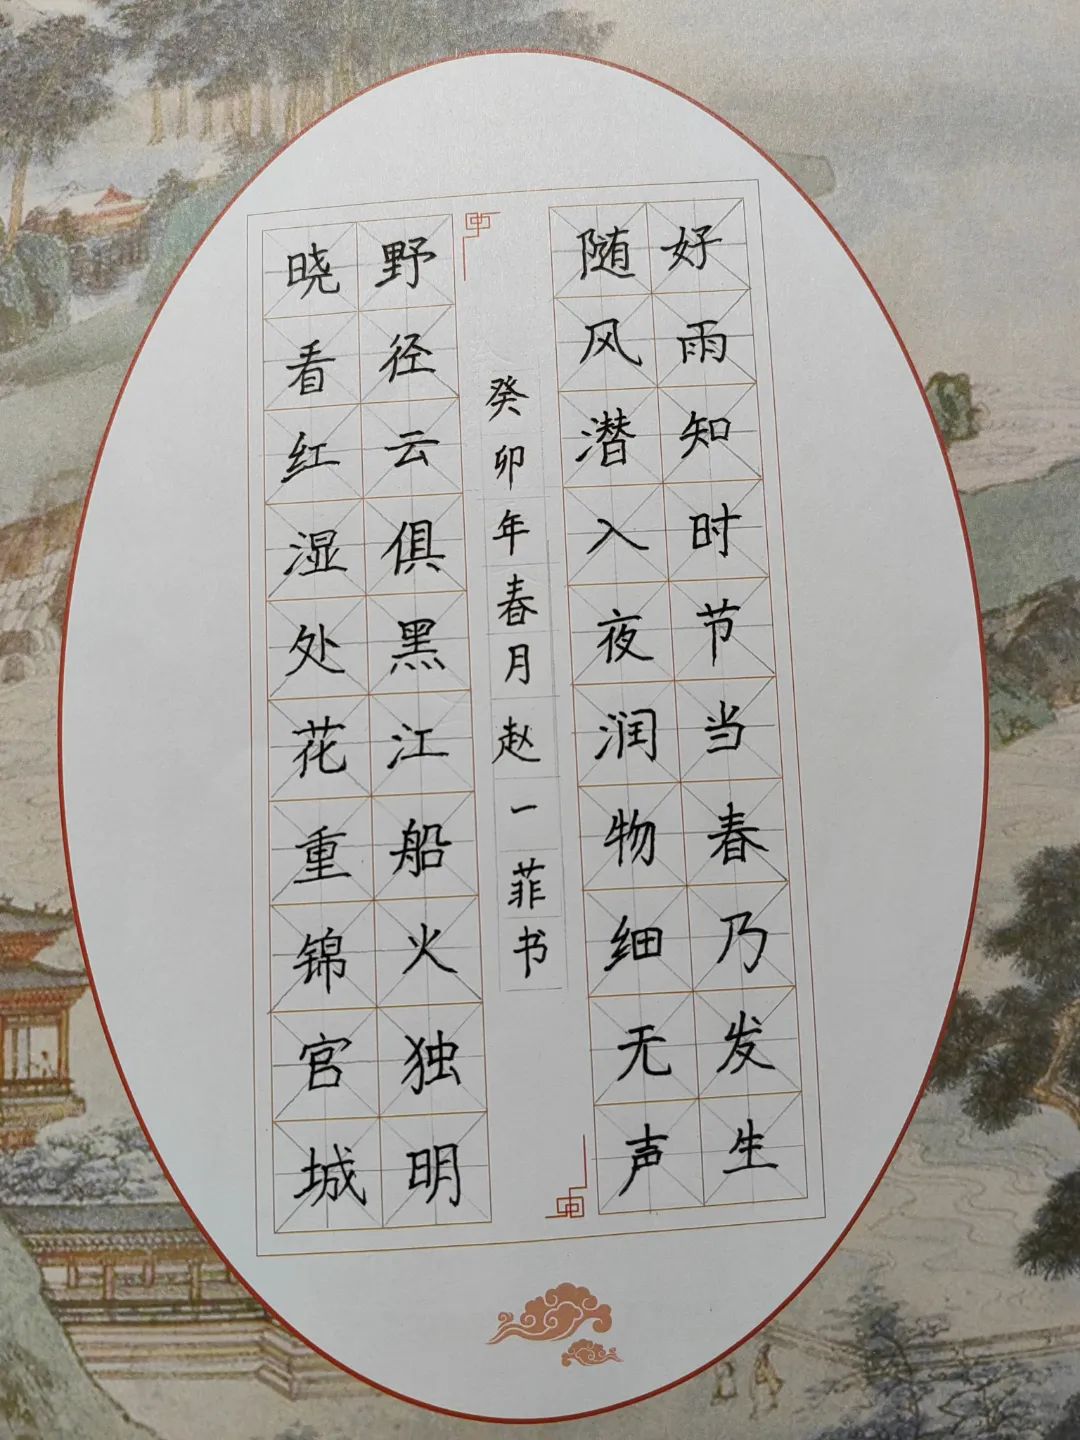 好雨知时节当春乃发生
随风潜入夜润物细无声
癸卯年春月赵一菲书
野径云俱黑江船火独明
晓看红湿处花重锦官城